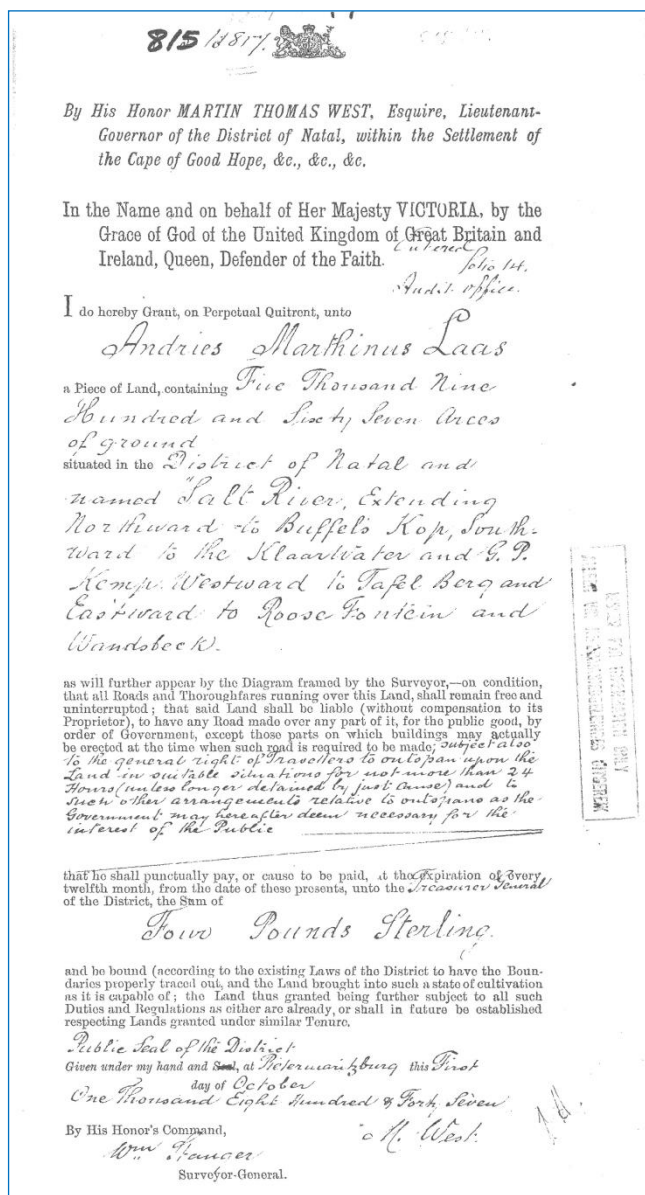 815/1847.
By His Honor MARTIN THOMAS WEST, Esquire, Lieutenant-
Governor of the District of Natal, within the Settlement of
the Cape of Good Hope, &c., &c., &c.
In the Name and on behalf of Her Majesty VICTORIA, by the
Grace of God of the United Kingdom of Great Britain and
Ireland, Queen, Defender of the Faith.
Entered
folio 14.
Audit office.
I do hereby Grant, on Perpetual Quitrent, unto
Andries Marthinus Laas
a Piece of Land, containing Five Thousand Nine
Hundred and Sixty Seven Acres
of ground
situated in the District of Natal and
named "Salt River, Extending
Northward to Buffels Kop, South-
ward to the Klaarwater and G. P.
Kemp. Westward to Tafel Berg and
Eastward to Roose Fontein and
Wandsbeck.
as will further appear by the Diagram framed by the Surveyor,—on condition,
that all Roads and Thoroughfares running over this Land, shall remain free and
uninterrupted; that said Land shall be liable (without compensation to its
Proprietor), to have any Road made over any part of it, for the public good, by
order of Government, except those parts on which buildings may actually
be erected at the time when such road is required to be made; subject also
to the general right of Travellers to outspan upon the
Land in suitable situations for not more than 24
Hours (unless longer detained by just Cause) and to
such other arrangements relative to outspans as the
Government may hereafter deem necessary for the
interest of the Public
that he shall punctually pay, or cause to be paid, at the Expiration of every
twelfth month, from the date of these presents, unto the Treasurer General
of the District, the Sum of
Four Pounds Sterling.
and be bound (according to the existing Laws of the District to have the Boun-
daries properly traced out, and the Land brought into such a state of cultivation
as it is capable of; the Land thus granted being further subject to all such
Duties and Regulations as either are already, or shall in future be established
respecting Lands granted under similar Tenure.
Public Seal of the District
Given under my hand and Seal, at Pietermaritzburg this First
day of October
One Thousand Eight Hundred & Forty Seven
By His Honor's Command,
M. West.
Wm Stanger
Surveyor-General.